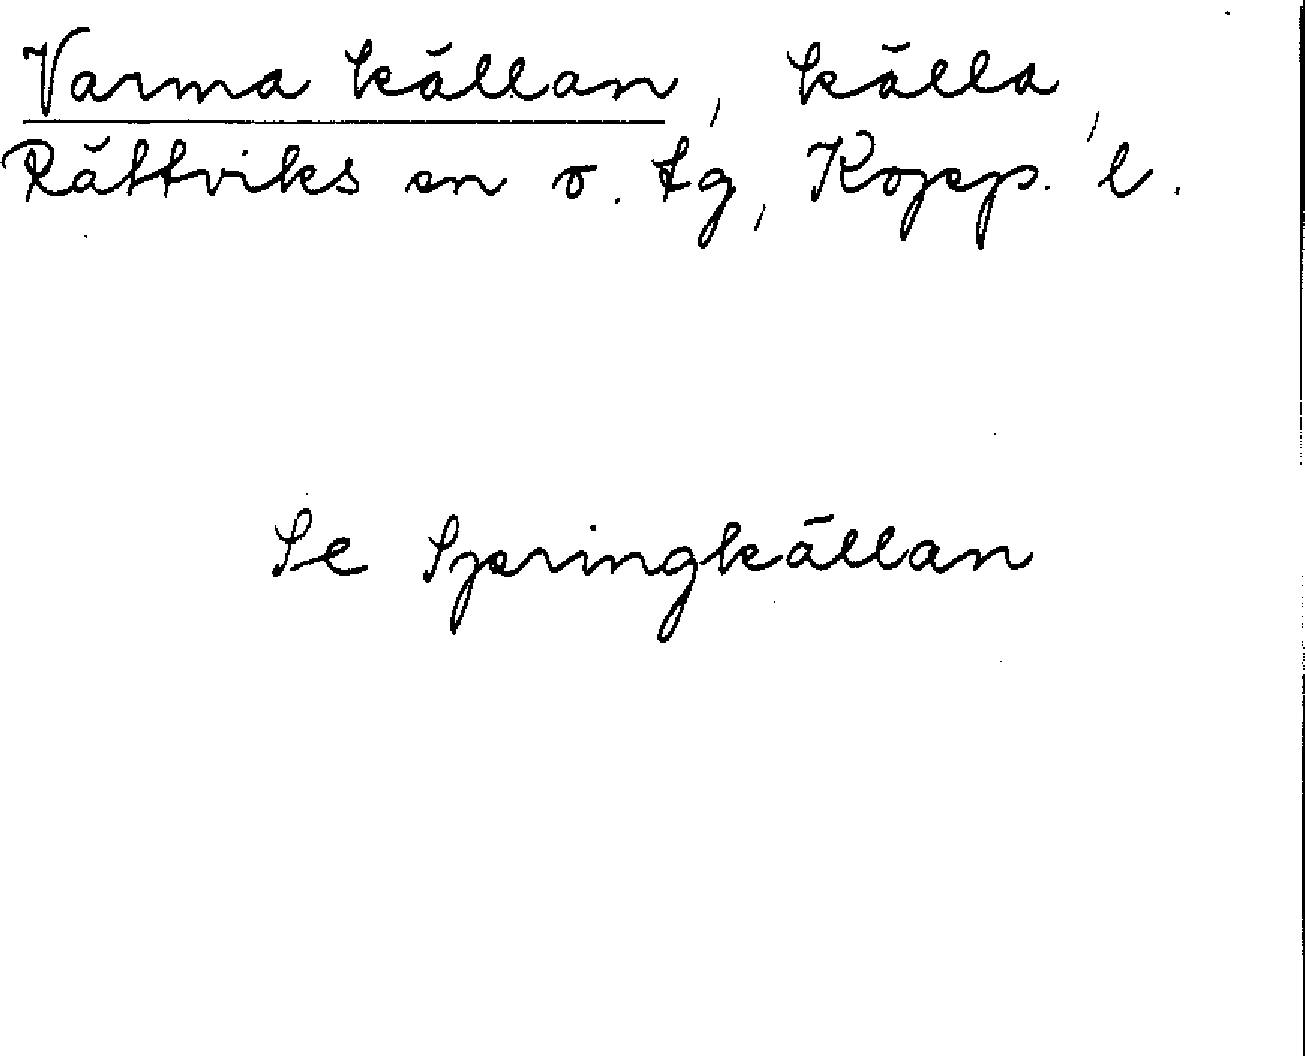 Varma källan, källa,
Rättviks sn o. tg, Kopp. l.
Se Springkällan